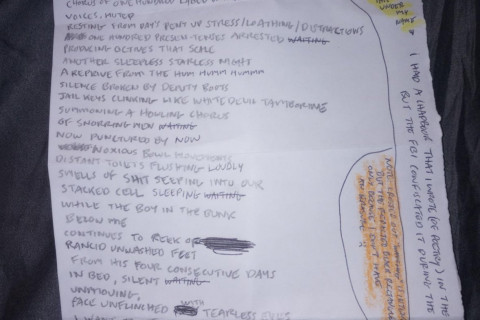 CHORUS OF ONE HUNDRED
VOICES, MUTED
RESTING FROM DAY'S PENT UP STRESS/LOATHING/DISTRACTIONS
ONE HUNDRED PRESENT-TENSES ARRESTED WAITING
PRODUCING OCTAVES THAT SCALE
ANOTHER SLEEPLESS STARLESS NIGHT
A REPRIEVE FROM THE HUM HUMM HUMMM
SILENCE BROKEN BY DEPUTY BOOTS
JAIL KEYS CLINKING LIKE WHITE DEVIL TAMBORINE
SUMMONING A HOWLING CHORUS
OF SNORRING MEN WAITING
NOW PUNCTURED BY NOW
NOXIOUS BOWL MOVEMENTS
DISTANT TOILETS FLUSHING LOUDLY
SMELLS OF SHIT SEEPING INTO OUR
STACKED CELL SLEEPING WAITING
WHILE THE BOY IN THE BUNK
BELOW ME
CONTINUES TO REEK OF
RANCID UNWASHED FEET
FROM HIS FOUR CONSECUTIVE DAYS
IN BED, SILENT WAITING
UNMOVING,
FACE UNFLINCHED WITH TEARLESS
UNDER
MY
NAME
I HAD A CHAPBOOK THAT I WROTE (OF POETRY) IN THE
BUT THE FBI CONFISCATED IT DURING THE